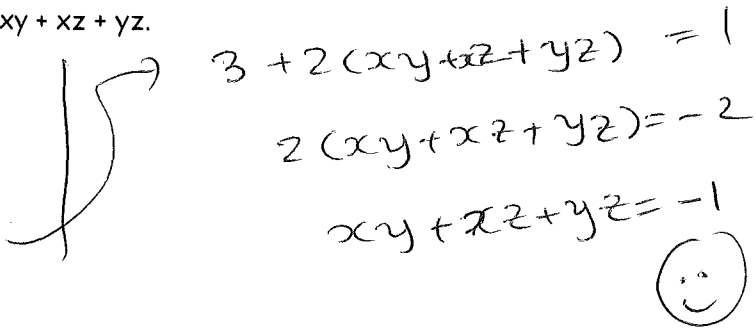 xy + xz + yz.
3 + 2(xy+xz+yz) = 1
2(xy+xz+yz)=-2
xy+xz+yz=-1